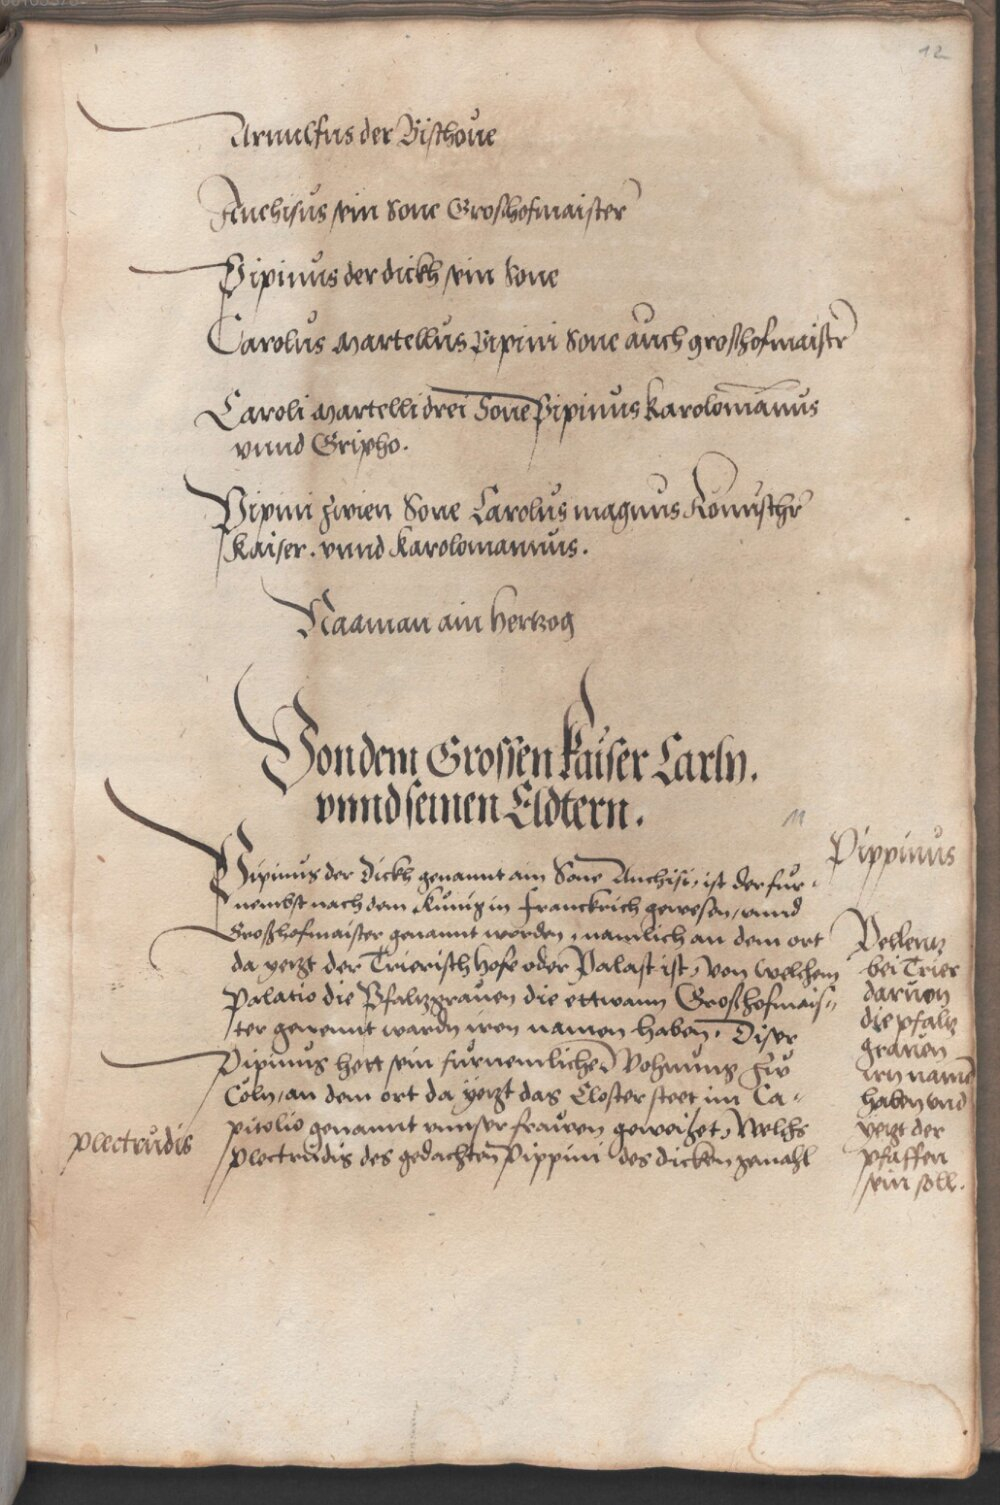 12
Arnulfus der Bischoue
Anchisus sein Sone Groshofmaister
Pipinus der dickh sein Sone
Carolus Martellus Pipini Sone auch groshofmaistr
Caroli Martelli drei Sone Pipinus Karolomannus
vnnd Gripho.
Pipini zwen Sone Carolus magnus Römischr
Kaiser. vnnd Karolomannus.
Naaman ain Hertzog
Von dem Grossen Kaiser Carln.
vnnd seinen Eldtern.
11
Pippinus
Pipinus der Dickh genannt ain Sone Anchisi, ist der fur-
nembst nach dem Kunig in Franckrich gewesen, vnnd
Groshofmaister genannt worden, namlich an dem ort
da yetzt der Trierisch Hofe oder Palast ist, Von welchem
Palatio die Pfaltzgrauen die ettwann Groshofmais-
ter genennt wardn iren namen haben. Diser
Pipinus hett sein furnemliche Wohnung zu
Cöln, an dem ort da yetzt das Closter steet im Ca-
pitolio genannt vnnser frawen geweihet, Welchs
Plectrudis des gedachten Pippini des dicken gemahl
Pellentz
bei Trier
daruon
die pfaltz
grauen
irn namen
haben vnd
yetzt der
pfaffen
sein soll.
plectrudis